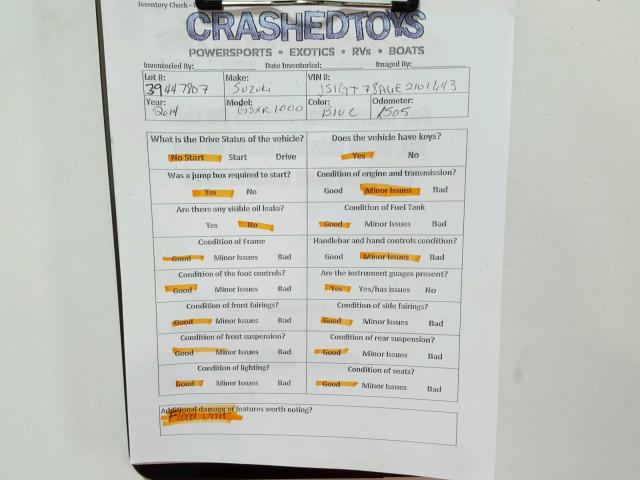 Inventory Check -
CRASHEDTOYS
POWERSPORTS • EXOTICS • RVs • BOATS
Inventoried By: Date Inventoried: Imaged By:
Lot #: Make: VIN #:
39447807 Suzuki
Year: Model: Color: Odometer:
2014 GSXR1000 Blue
What is the Drive Status of the vehicle? Does the vehicle have keys?
No Start Start Drive Yes No
Was a jump box required to start? Condition of engine and transmission?
Yes No Good Minor Issues Bad
Are there any visible oil leaks? Condition of Fuel Tank
Yes No Good Minor Issues Bad
Condition of Frame Handlebar and hand controls condition?
Good Minor Issues Bad Good Minor Issues Bad
Condition of the foot controls? Are the instrument guages present?
Good Minor Issues Bad Yes Yes/has issues No
Condition of front fairings? Condition of side fairings?
Good Minor Issues Bad Good Minor Issues Bad
Condition of front suspension? Condition of rear suspension?
Good Minor Issues Bad Good Minor Issues Bad
Condition of lighting? Condition of seats?
Good Minor Issues Bad Good Minor Issues Bad
Additional damage or features worth noting?
Flood unit